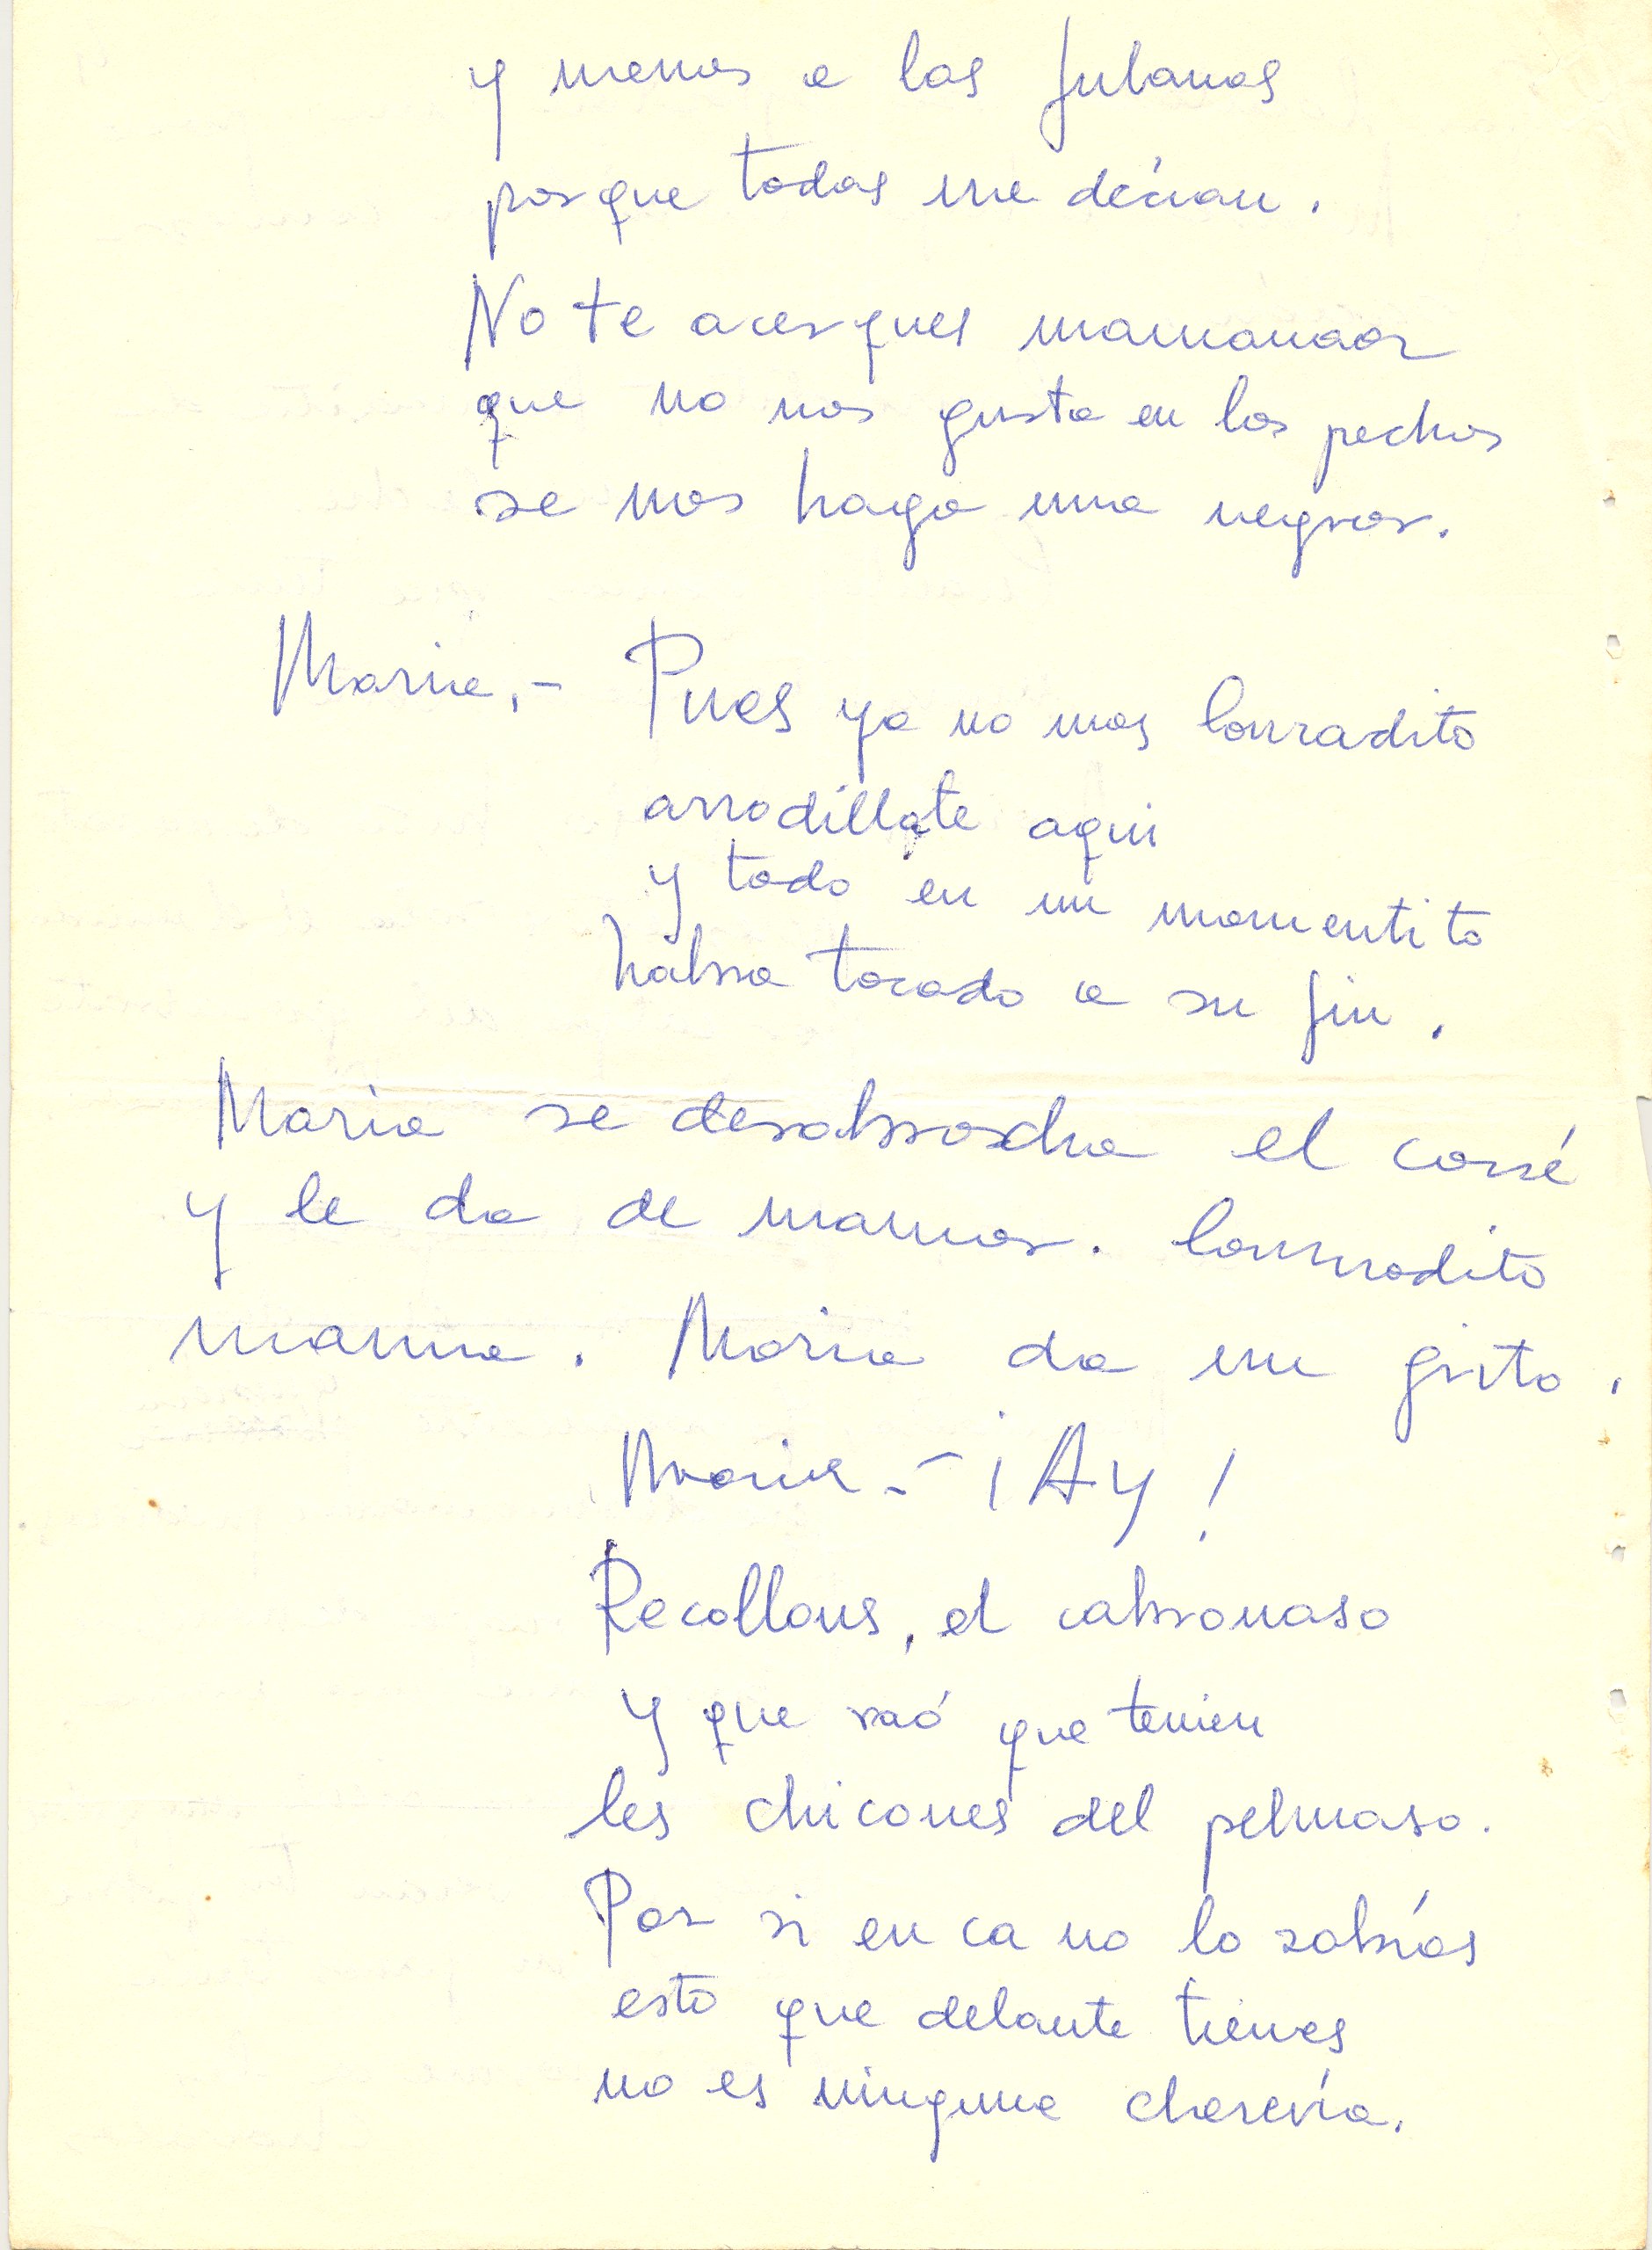 y menos a las fulanas
porque todas me decían.
No te acerques mamanaor
que no nos gusta en los pechos
se nos haga una negror.
Maria.- Pues ya no mas lonradito
arrodillate aqui
y todo en un momentito
habra tocado a su fin.
Maria se desabrocha el corsé
y le da de mamar. lonrradito
mama. Maria da un grito.
Maria.- ¡AY!
Recollons, el cabronaso
y que raó que tenien
les chicones del pelmaso.
Por si en ca no lo sabías
esto que delante tienes
no es ninguna cherevía.